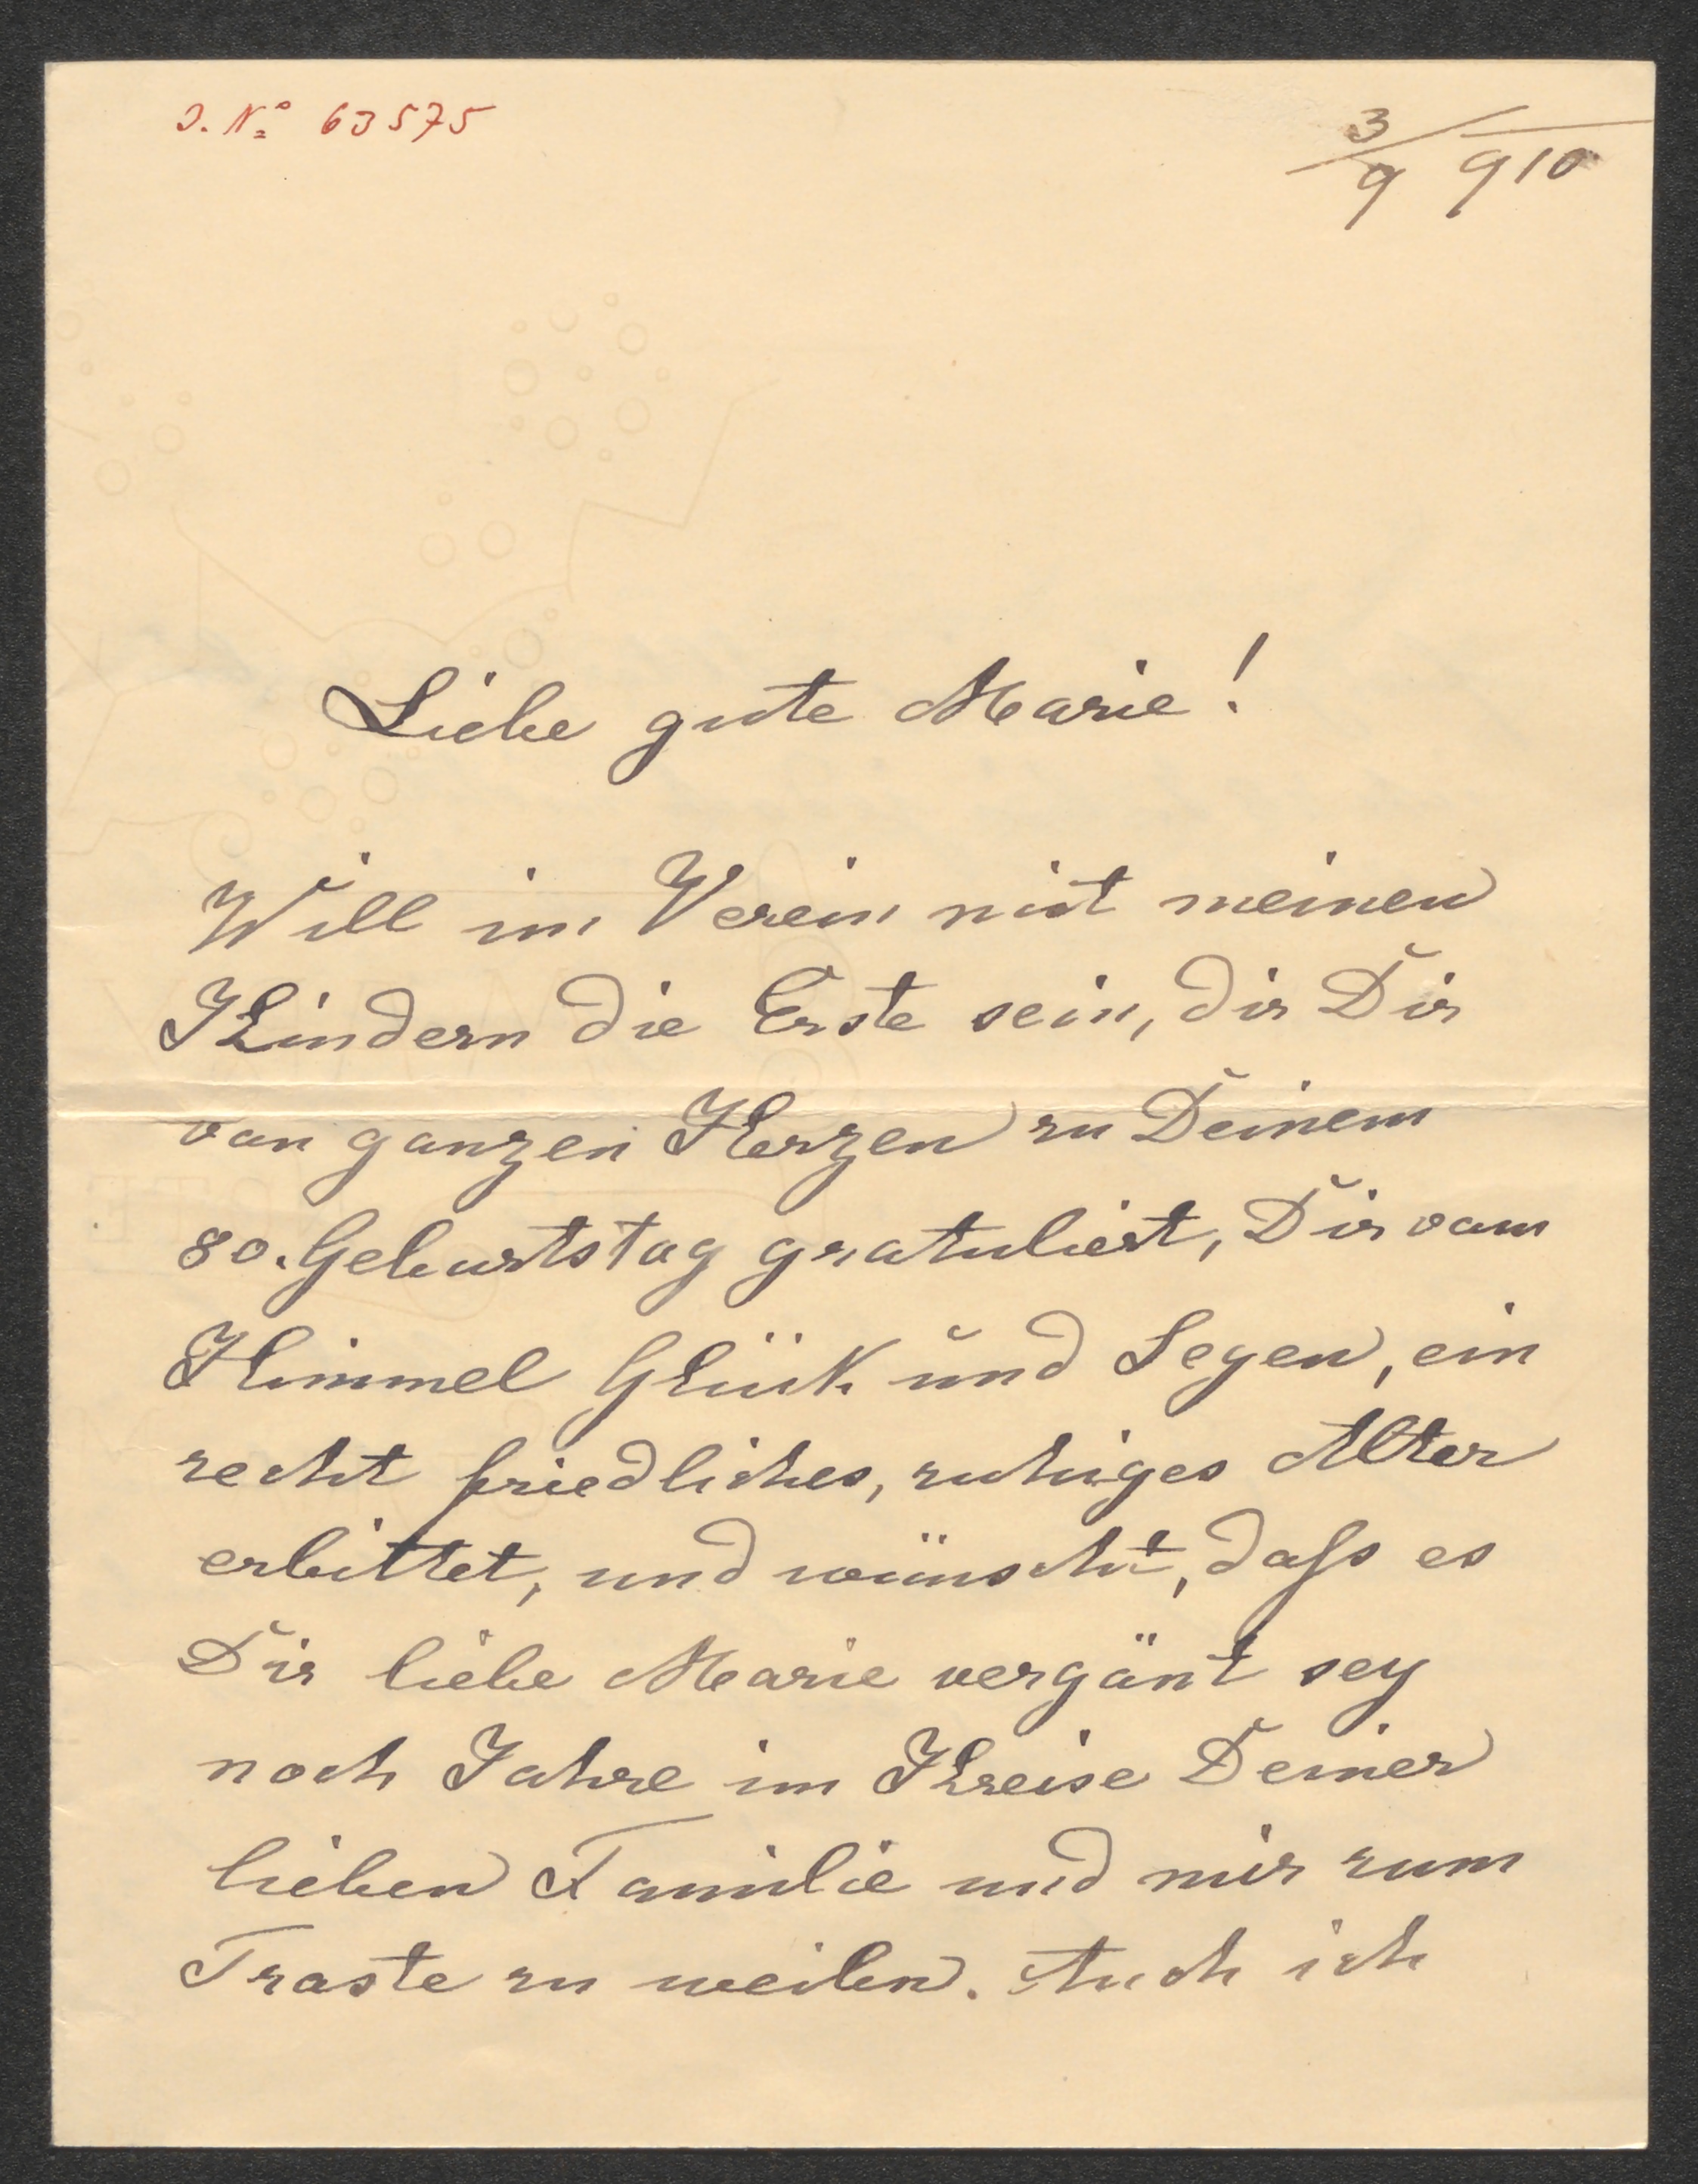 J. No 63575
3/9 910
Liebe gute Marie!
Will im Verein mit meinen
Kindern die Erste sein, die Dir
von ganzen Herzen zu Deinem
80. Geburtstag gratuliert, Dir vom
Himmel Glück und Segen, ein
recht friedliches, ruhiges Alter
erbittet, und wünscht, daß es
Dir liebe Marie vergönt sey
noch Jahre im Kreise Deiner
lieben Familie und mir zum
Troste zu weilen. Auch ich